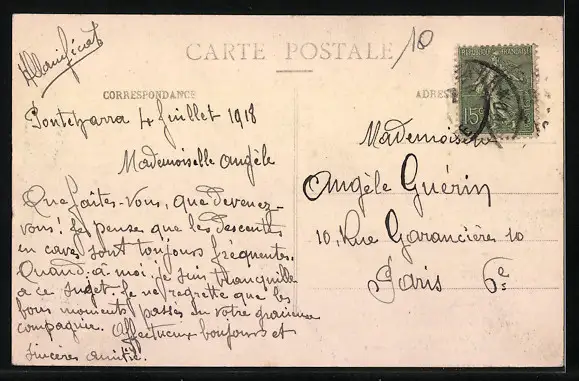 CARTE POSTALE
10
CORRESPONDANCE
ADRES
RÉPUBLIQUE FRANÇAISE
15
Pontcharra 4 Juillet 1918
Mademoiselle Angèle
Que faites-vous, que devenez-
vous! Je pense que les descentes
en caves sont toujours fréquentes.
Quand-à-moi je suis tranquille
à ce sujet. Je ne regrette que les
bons moments passés en votre gracieuse
compagnie. Affectueux bonjours et
sincères amitié.
Mademoiselle
Angèle Guérin
10, Rue Garancière 10
Paris 6e